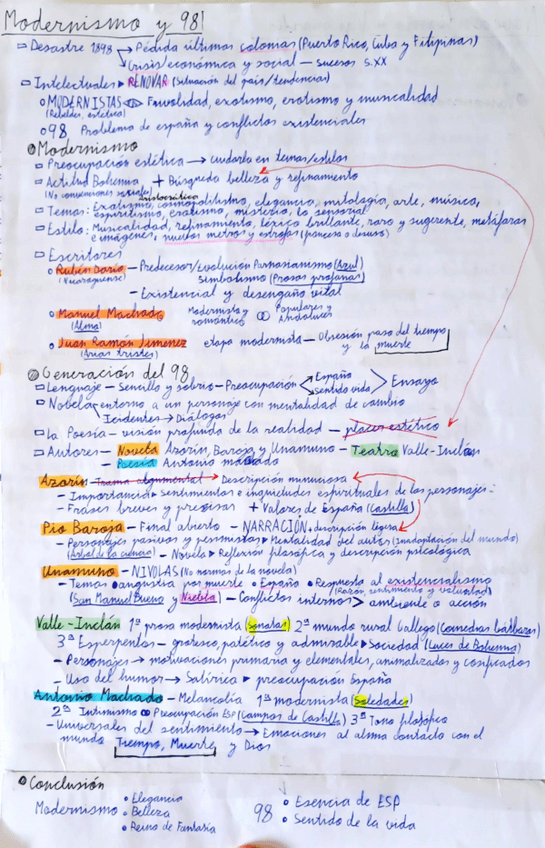 Modernismo y 98
Desastre 1898 → Pédida últimas colonias (Puerto Rico, Cuba y Filipinas)
Crisis económica y social – sucesos S.XX
Intelectuales ▸ RENOVAR (situación del país/tendencias)
MODERNISTAS
(Rebeldes, estética)
musicalidad
98 Problema de españa y conflictos existenciales
Modernismo
Preocupación estética → cuidado en temas/estilos
Actitud Bohemia + Búsqueda belleza y refinamiento
(No convenciones sociales) Aristocrático
Temas: Exotismo, cosmopolitismo, elegancia, mitología, arte, música,
espiritismo, erotismo, misterio, lo sensorial
Estilo: Musicalidad, refinamiento, léxico brillante, raro y sugerente, metáforas
e imágenes, nuevos metros y estrofas
Escritores
Rubén Darío – Predecesor/Evolución Parnasianismo (Azul)
(Nicaragüense) Simbolismo (Prosas profanas)
– Existencial y desengaño vital
Manuel Machado Modernista y romántico Populares y Andaluces
(Alma)
Juan Ramón Jimenez etapa modernista – Obsesión paso del tiempo
(Arias tristes) y la muerte
Generación del 98
Lenguaje – Sencillo y sobrio – Preocupación España Sentido vida Ensayo
Novela entorno a un personaje con mentalidad de cambio
Incidentes → Diálogos
La Poesía – visión profunda de la realidad – placer estético
Autores – Novela Azorín, Baroja y Unamuno – Teatro Valle-Inclán
– Poesía Antonio machado
Azorín – Trama argumental → Descripción minuciosa
– Importancia ▸ sentimientos e inquietudes espirituales de los personajes:
– Frases breves y precisas + Valores de España (Castilla)
Pio Baroja – Final abierto – NARRACIÓN + descripción ligera
– Personajes pasivos y pesimistas ▸ Mentalidad del autor (inadaptación del mundo)
(Árbol de la ciencia) – Novela ▸ Reflexión filosófica y descripción psicológica
Unamuno – NIVOLAS (No normas de la novela)
– Temas • angustia por muerte • España • Respuesta al existencialismo
(Razón, sentimiento y voluntad)
(San Manuel Bueno y Niebla) – Conflictos internos > ambiente o acción
Valle-Inclán 1º prosa modernista (Sonatas) 2º mundo rural Gallego (Comedias bárbaras)
3º Esperpentos – grotesco, patético y admirable ▸ Sociedad (Luces de Bohemia)
– Personajes → motivaciones primaria y elementales, animalizados y cosificados
– Uso del humor → Satírica ▸ preocupación España
Antonio Machado – Melancolía 1º modernista (Soledades)
2º Intimismo ∞ Preocupación ESP (Campos de Castilla) 3º Tono filosófico
– Universales del sentimiento → Emociones al alma contacto con el
mundo Tiempo, Muerte y Dios
Conclusión
Modernismo • Elegancia • Belleza • Reino de Fantasía
98 • Esencia de ESP • Sentido de la vida